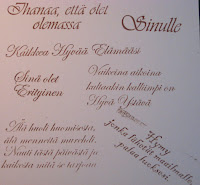 Ihanaa, että olet
olemassa
Sinulle
Kaikkea Hyvää Elämääsi
Sinä olet
Erityinen
Vaikeina aikoina
kultaakin kalliimpi on
Hyvä Ystävä
Älä huoli huomisesta,
älä menneitä murehdi.
Nauti tästä päivästä ja
kaikesta mitä se tarjoaa
Hymy
jonka lähetät maailmalle,
palaa luoksesi